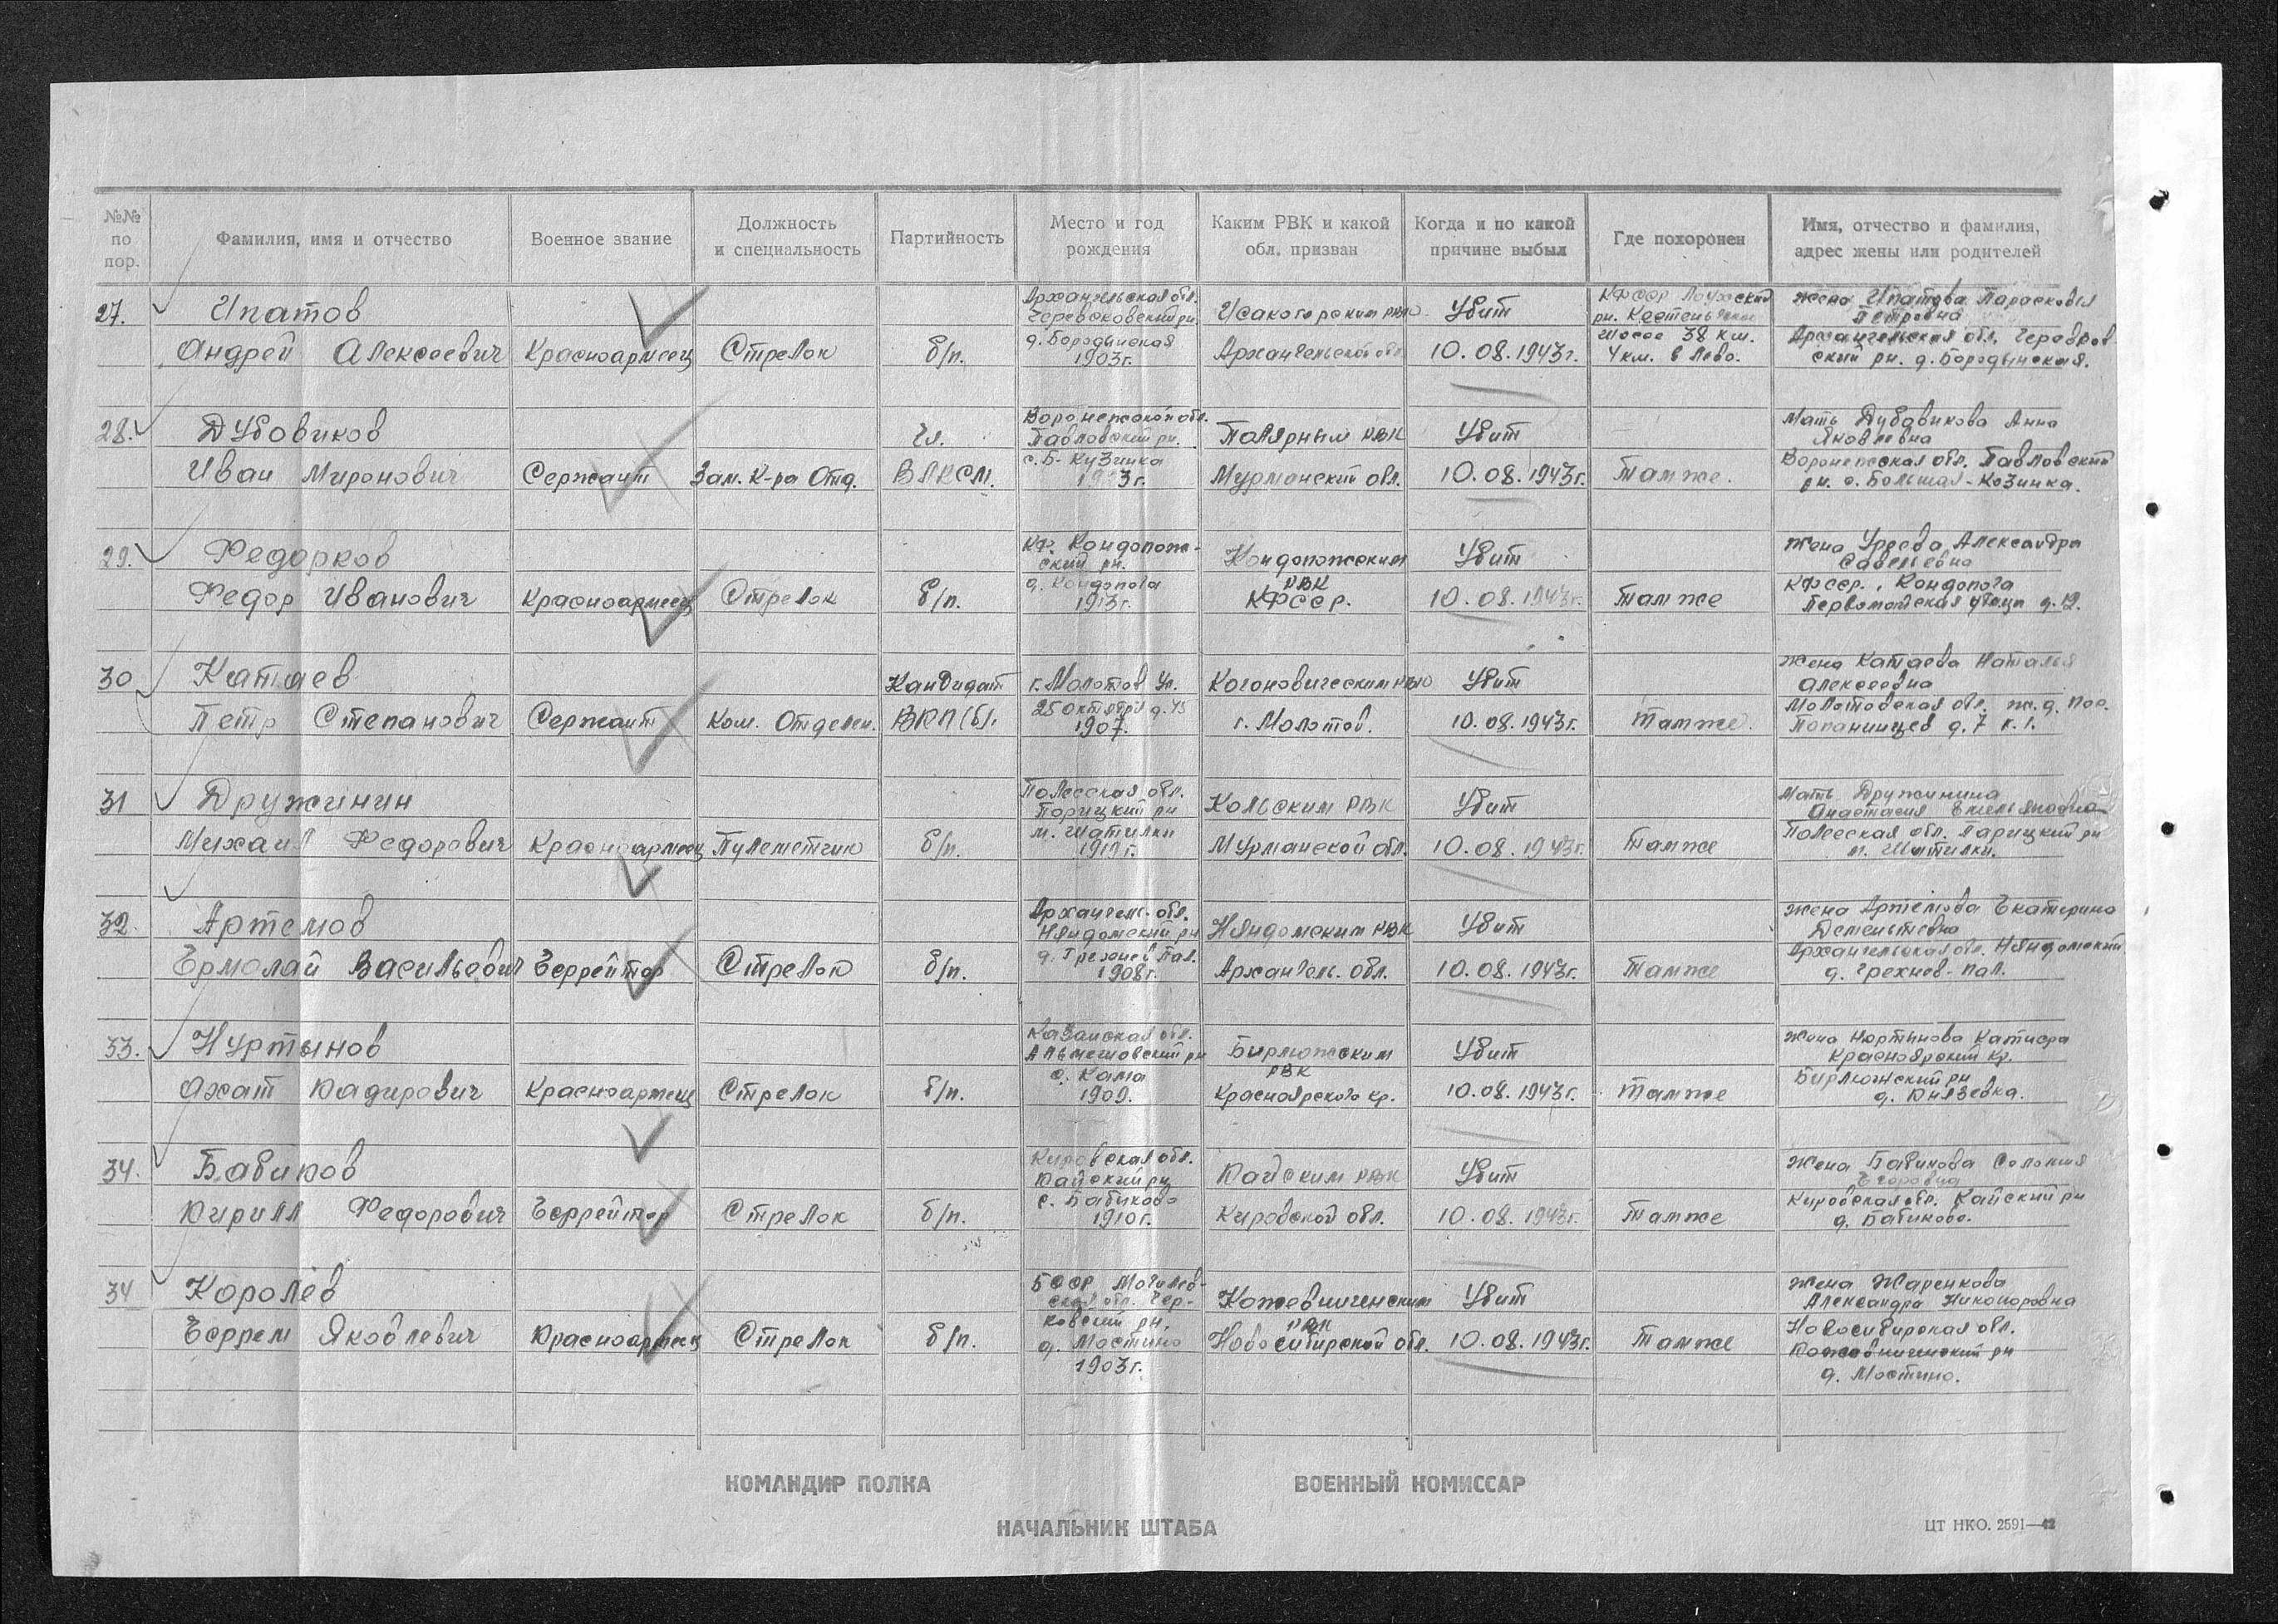 №№ по пор.
Фамилия, имя и отчество
Военное звание
Должность и специальность
Партийность
Место и год рождения
Каким РВК и какой обл. призван
Когда и по какой причине выбыл
Где похоронен
Имя, отчество и фамилия, адрес жены или родителей
27.
Ипатов
Андрей Алексеевич
Красноармеец
Стрелок
б/п.
Архангельская обл.
Черевковский рн.
д. Бородинская
1903г.
Исакогорским РВК
Архангельской обл.
Убит
10.08.1943г.
КФССР Лоухский
рн. Кестеньгское
шоссе 38 км.
4 км. влево.
Жена Ипатова Парасковья
Петровна
Архангельская обл. Черевков
ский рн. д. Бородинская.
28.
Дубовиков
Иван Миронович
Сержант
Зам. К-ра Отд.
Чл.
ВЛКСМ.
Воронежской обл.
Павловский рн.
с. Б-Кузинка
Полярным РВК
Мурманский обл.
Убит
10.08.1943г.
Там же.
Мать Дубовикова Анна
Яковлевна
Воронежская обл. Павловский
рн. с. Большая-Козинка.
29.
Федорков
Федор Иванович
Красноармеец
Стрелок
б/п.
КФ. Кондопож-
ский рн.
д. Кондопога
1913г.
Кондопожским
РВК
КФССР.
Убит
10.08.1943г.
Там же
Жена Александра
Савельевна
КФССР. Кондопога
Первомайская улица д.12.
30
Катаев
Петр Степанович
Сержант
Ком. Отделен.
Кандидат
ВКП(б).
г. Молотов Ул.
25 Октября д. 45
1907.
Когоновическим РВК
г. Молотов.
Убит
10.08.1943г.
Там же.
Жена Катаева Наталья
Алексеевна
Молотовская обл. ж.д. пос.
Попанинцев д. 7 к. 1.
31
Дружинин
Михаил Федорович
Красноармеец
Пулеметчик
б/п.
Полесская обл.
Парицкий рн
м. Шатилки
1919г.
Кольским РВК
Мурманской обл.
Убит
10.08.1943г.
Там же
Мать Дружинина
Анастасия Емельяновна
Полесская обл. Парицкий рн
м. Шатилки.
32.
Артемов
Ермолай Васильевич
Ефрейтор
Стрелок
б/п.
Архангель. обл.
Няндомский рн
д. Грехнев Пал.
1908г.
Няндомским РВК
Архангель. обл.
Убит
10.08.1943г.
Там же
Жена Артемова Екатерина
Дементьевна
Архангельская обл. Няндомский
д. Грехнев-пал.
33.
Нуртынов
Ахат Кадирович
Красноармеец
Стрелок
б/п.
Казанская обл.
Альметовский рн
с. Кама
1909.
Бирлюжским
РВК
Красноярского кр.
Убит
10.08.1943г.
Там же
Жена Нортынова Катифа
Красноярский кр.
Бирлюжский рн
д. Князевка.
34.
Бабиков
Кирилл Федорович
Ефрейтор
Стрелок
б/п.
Кировская обл.
Кайский рн
с. Бабиково
1910г.
Кайским РВК
Кировской обл.
Убит
10.08.1943г.
Там же
Жена Бабикова Соломия
Егоровна
Кировская обл. Кайский рн
д. Бабиково.
34
Королёв
Ефрем Яковлевич
Красноармеец
Стрелок
б/п.
БССР Могилев-
ская обл. Чер-
ковский рн.
д. Мостино
1903г.
Кожевниченским
РВК
Новосибирской обл.
Убит
10.08.1943г.
Там же
Жена Жаренкова
Александра Никоноровна
Новосибирская обл.
Кожевниченский рн
д. Мостино.
КОМАНДИР ПОЛКА
ВОЕННЫЙ КОМИССАР
НАЧАЛЬНИК ШТАБА
ЦТ НКО. 2591—42